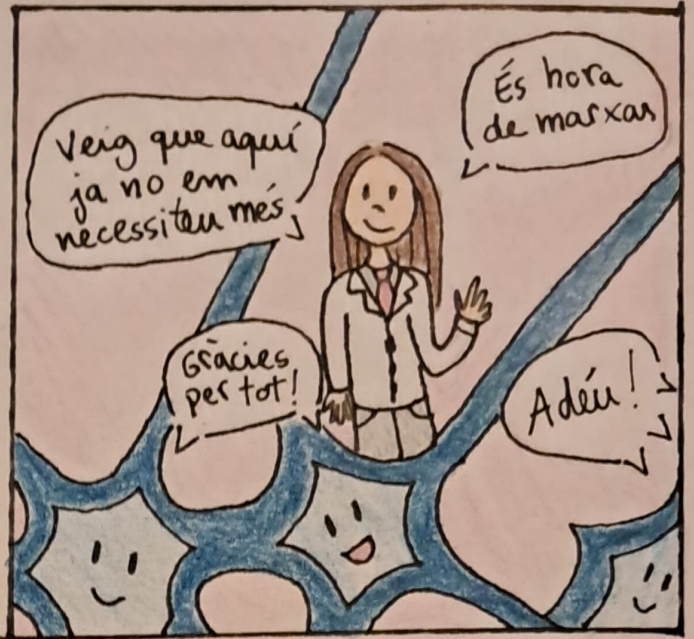 Veig que aquí
ja no em
necessiteu més
És hora
de marxar
Gràcies
per tot!
Adéu!